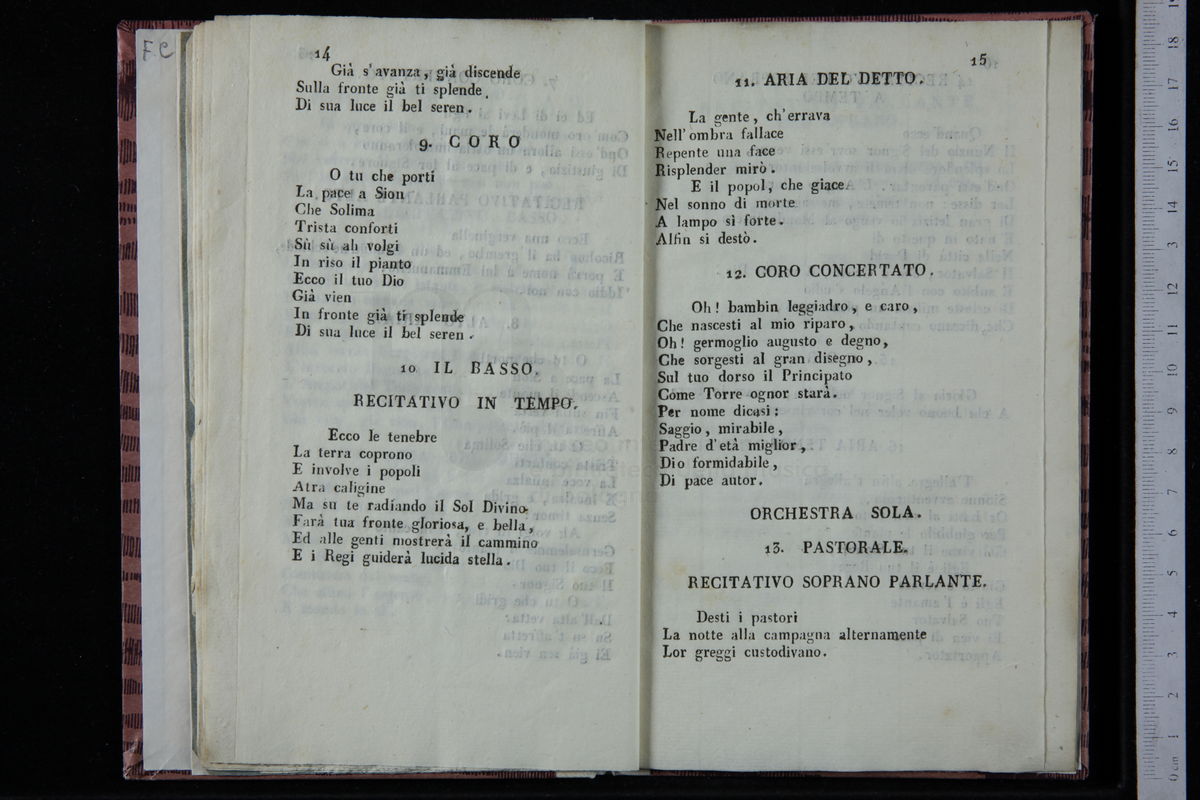 FC
14
Già s'avanza, già discende
Sulla fronte già ti splende
Di sua luce il bel seren.
9. CORO
O tu che porti
La pace a Sion
Che Solima
Trista conforti
Sù sù ah volgi
In riso il pianto
Ecco il tuo Dio
Già vien
In fronte già ti splende
Di sua luce il bel seren.
10 IL BASSO.
RECITATIVO IN TEMPO.
Ecco le tenebre
La terra coprono
E involve i popoli
Atra caligine
Ma su te radiando il Sol Divino
Farà tua fronte gloriosa, e bella,
Ed alle genti mostrerà il cammino
E i Regi guiderà lucida stella.
15
11. ARIA DEL DETTO.
La gente, ch'errava
Nell'ombra fallace
Repente una face
Risplender mirò.
E il popol, che giace
Nel sonno di morte
A lampo sì forte.
Alfin si destò.
12. CORO CONCERTATO.
Oh! bambin leggiadro, e caro,
Che nascesti al mio riparo,
Oh! germoglio augusto e degno,
Che sorgesti al gran disegno,
Sul tuo dorso il Principato
Come Torre ognor starà.
Per nome dicasi:
Saggio, mirabile,
Padre d'età miglior,
Dio formidabile,
Di pace autor.
ORCHESTRA SOLA.
13. PASTORALE.
RECITATIVO SOPRANO PARLANTE.
Desti i pastori
La notte alla campagna alternamente
Lor greggi custodivano.
0 cm 1 2 3 4 5 6 7 8 9 10 11 12 13 14 15 16 17 18 19